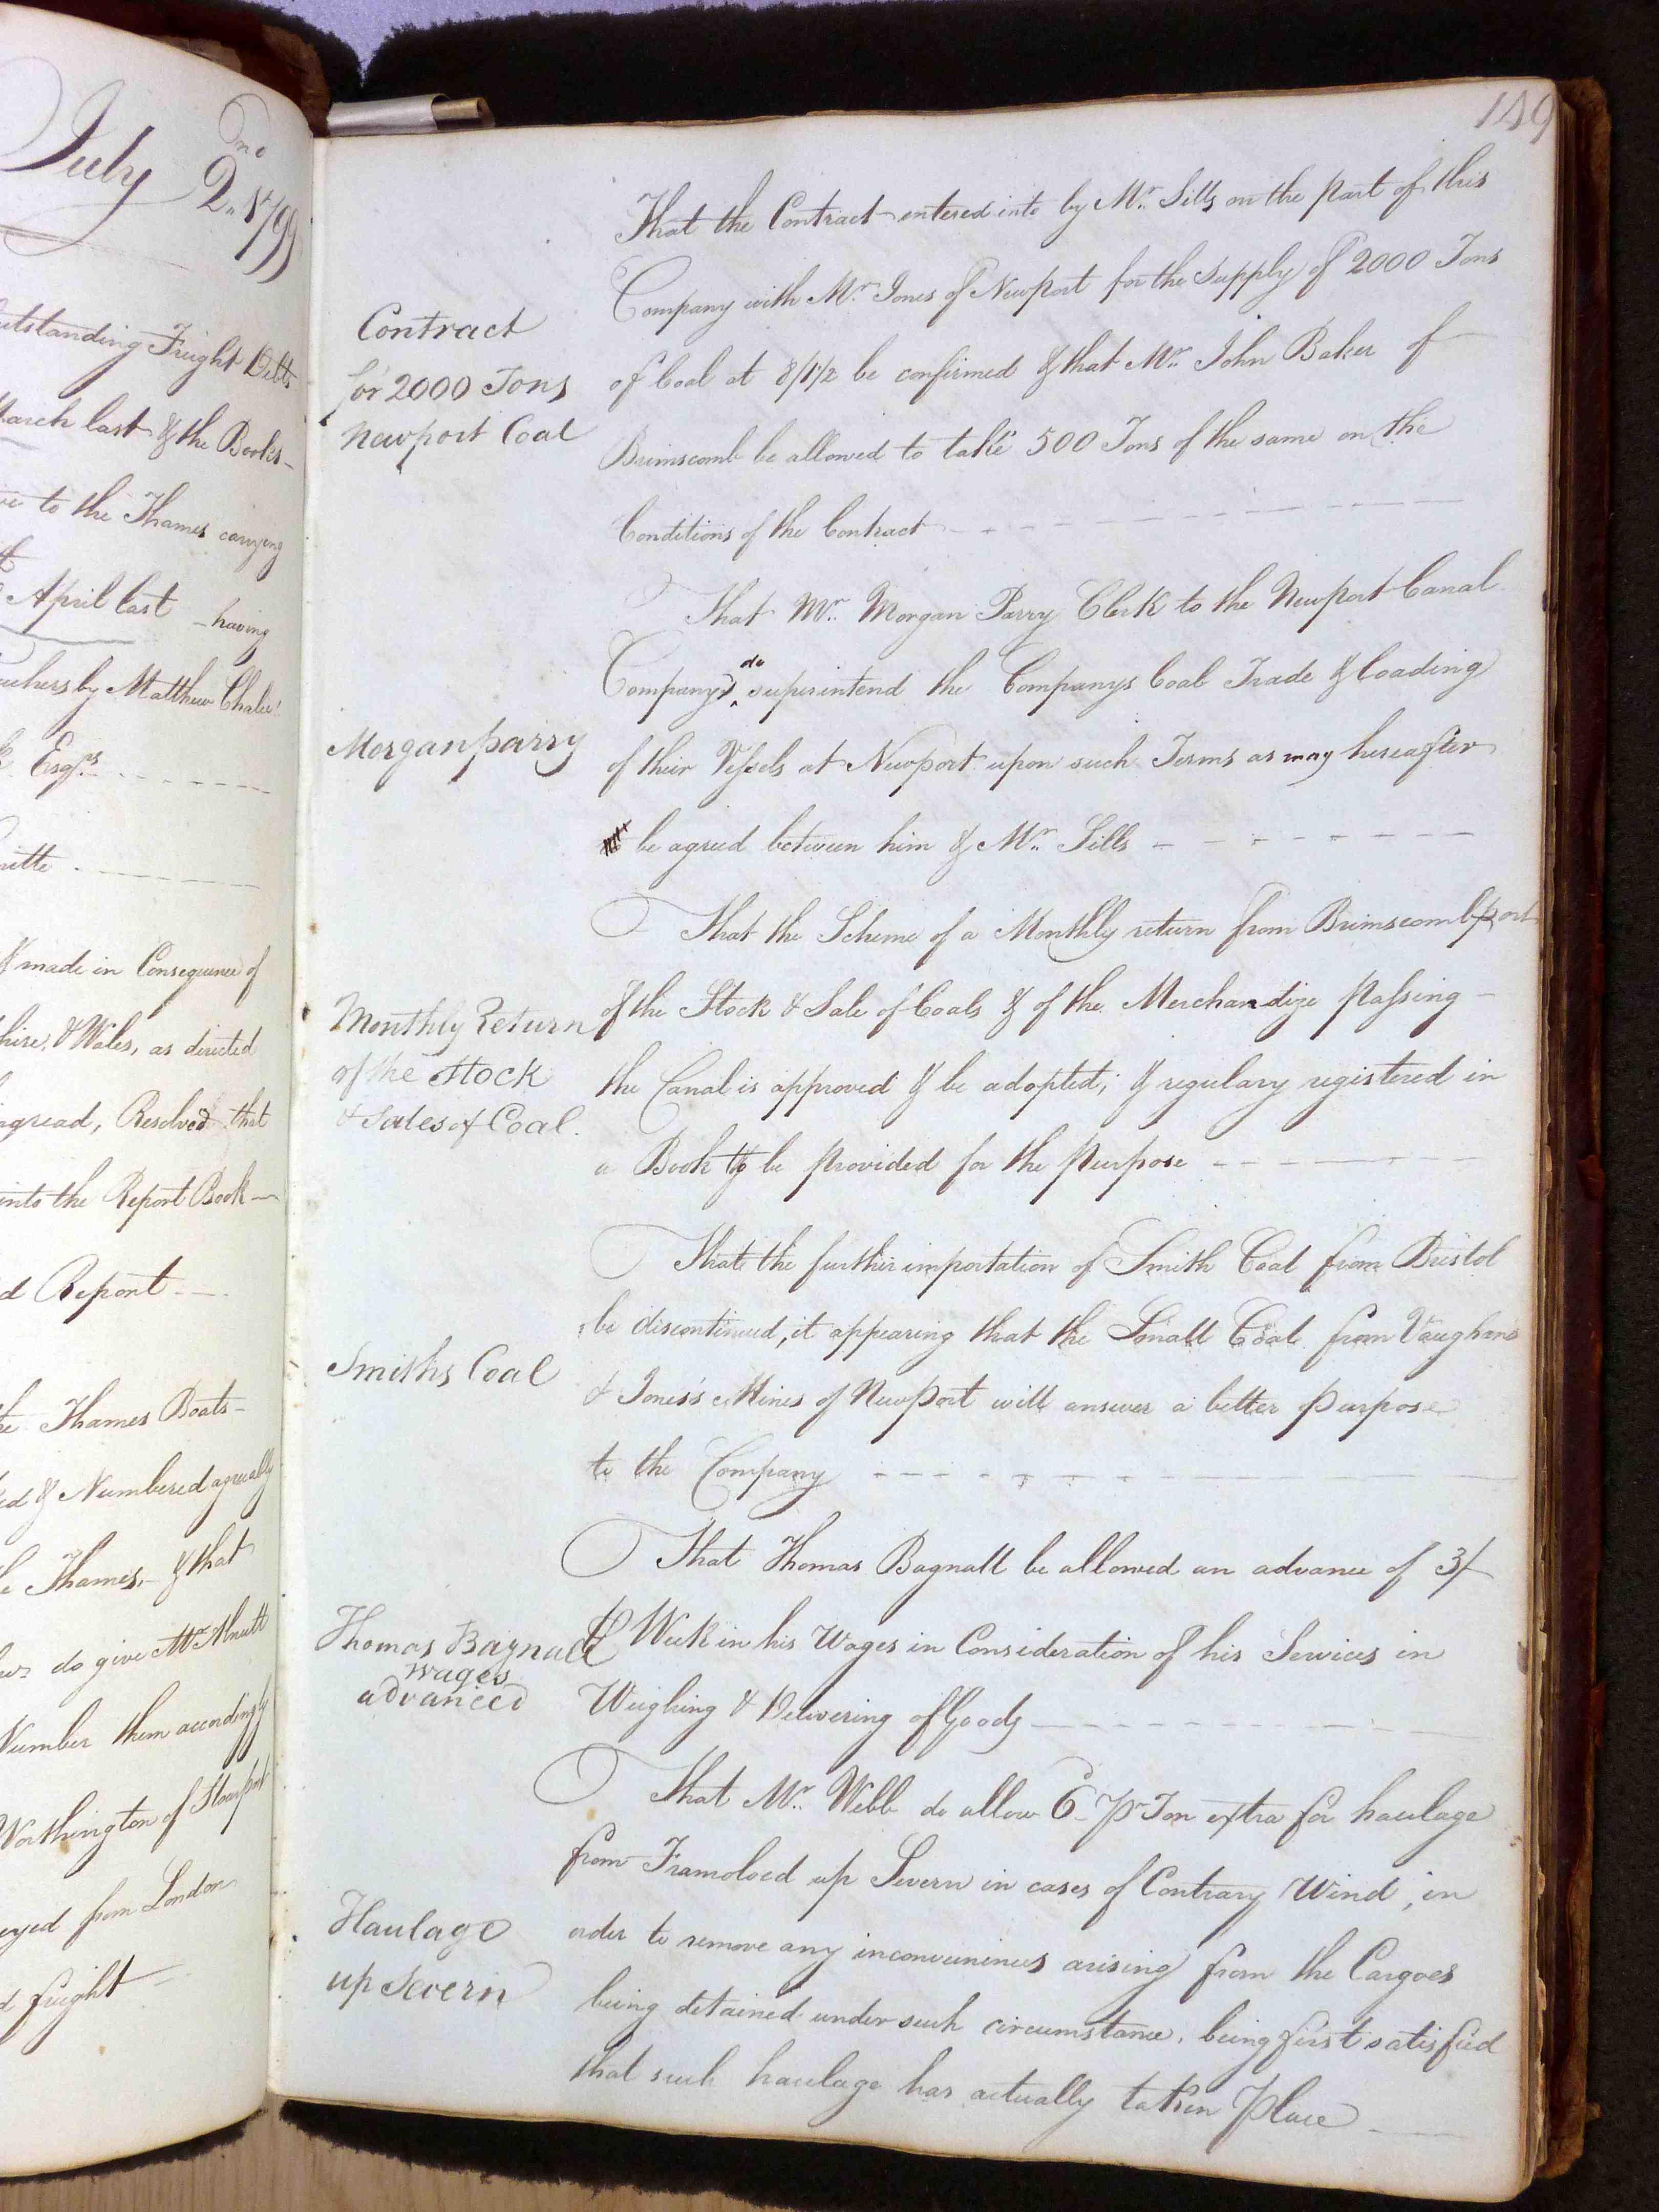 July 2nd 1799
utstanding Freight Debts
March last & the Books
to the Thames carrying
April last having
uchers by Matthew Chale
Esqrs
mitte
& made in Consequence of
hire & Wales, as directed
read, Resolved that
into the Report Book
d Report
the Thames Boats
ed & Numbered agreeably
Thames, & that
do give Mr Mnutt
Number them accordingly
Worthington of Stourport
eyed from London
d freight
149
That the Contract entered into by Mr. Sills on the part of this
Company with Mr. Jones of Newport for the Supply of 2000 Tons
Contract
for 2000 Tons
Newport Coal
of Coal at 8/1½ be confirmed & that Mr. John Baker of
Brimscomb be allowed to take 500 Tons of the same on the
Conditions of the Contract
That Mr. Morgan Parry Clerk to the Newport Canal
Companys do superintend the Companys Coal Trade & Loading
Morgan parry
of their Vessels at Newport upon such Terms as may hereafter
be agreed between him & Mr. Sills
That the Scheme of a Monthly return from Brimscomb port
Monthly Return
of the Stock
& Sales of Coal.
of the Stock & Sale of Coals & of the Merchandize passing
the Canal is approved & be adopted; & regulary registered in
a Book to be provided for the Purpose
That the further importation of Smith Coal from Bristol
be discontinued, it appearing that the Small Coal from Vaughans
Smiths Coal
& Jones's Mines of Newport will answer a better purpose
to the Company
That Thomas Bagnall be allowed an advance of 3/
Thomas Bagnall
wages
advanced
⅌ Week in his Wages in Consideration of his Services in
Weighing & Delivering of Goods
That Mr. Webb do allow 6 pr Ton extra for haulage
from Framoload up Severn in cases of Contrary Wind, in
Haulage
up Severn
order to remove any inconveniences arising from the Cargoes
being detained under such circumstance, being first satisfied
that such haulage has actually taken Place